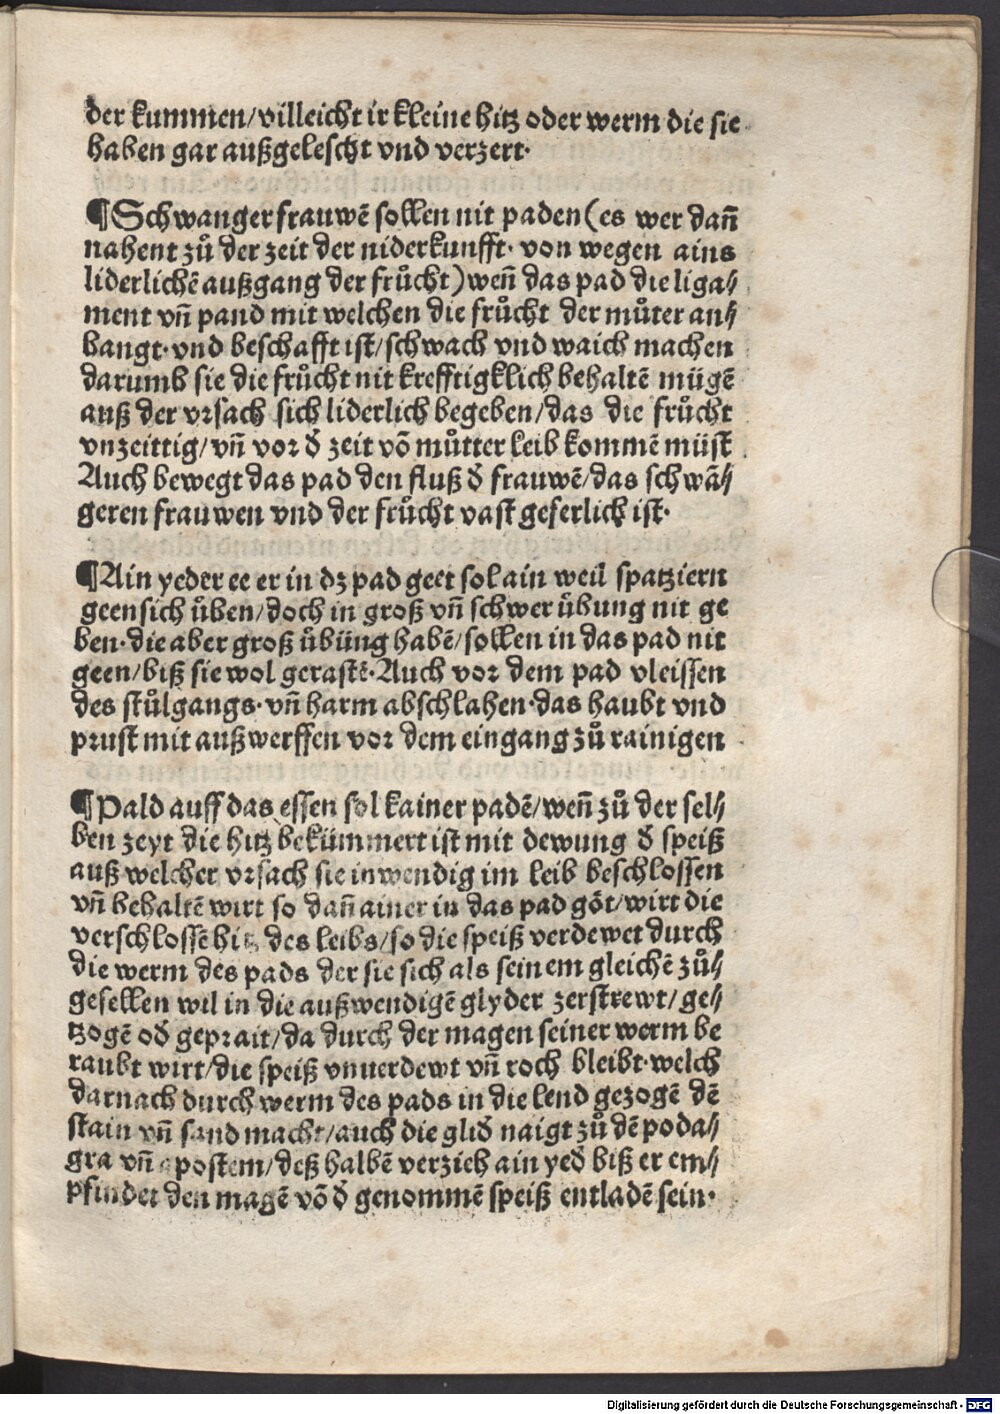 der kummen/villeicht ir kleine hitz oder werm die sie
haben gar außgelescht vnd verzert·
¶Schwanger frauwē sollen nit paden(es wer dañ
nahent zů der zeit der niderkunfft· von wegen ains
liderlichē außgang der frůcht)weñ das pad die liga⸗
ment vñ pand mit welchen die frůcht der můter an⸗
hangt·vnd beschafft ist/schwach vnd waich machen
darumb sie die frůcht nit krefftigklich behaltē mügē
auß der vrsach sich liderlich begeben/das die frůcht
vnzeittig/vñ vor đ zeit võ můtter leib kommē müst
Auch bewegt das pad den fluß đ frauwē/das schwā⸗
geren frauwen vnd der frůcht vast geferlich ist·
¶Ain yeder ee er in dz pad geet sol ain weil spatziern
geen sich ůben/doch in groß vñ schwer ůbung nit ge
ben·die aber groß ůbüng habē/sollen in das pad nit
geen/biß sie wol gerastē·Auch vor dem pad vleissen
des stůlgangs·vñ harm abschlahen·das haubt vnd
prust mit außwerffen vor dem eingang zů rainigen
¶Pald auff das essen sol kainer padē/weñ zů der sel⸗
ben zeyt die hitz bekümmert ist mit dewung đ speiß
auß welcher vrsach sie inwendig im leib beschlossen
vñ behaltē wirt so dañ ainer in das pad göt/wirt die
verschlossē hitz des leibs/so die speiß verdewet durch
die werm des pads der sie sich als seinem gleichē zů⸗
gesellen wil in die außwendigē glyder zerstrewt/ge⸗
tzogē ođ geprait/da durch der magen seiner werm be
raubt wirt/die speiß vnuerdewt vñ roch bleibt·welch
darnach durch werm des pads in die lend gezogē dē
stain vñ sand macht/auch die gliđ naigt zů dē poda⸗
gra vñ apostem/deß halbē verzieh ain yeđ biß er em⸗
pfindet den magē võ đ genommē speiß entladē sein·
Digitalisierung gefördert durch die Deutsche Forschungsgemeinschaft - DFG